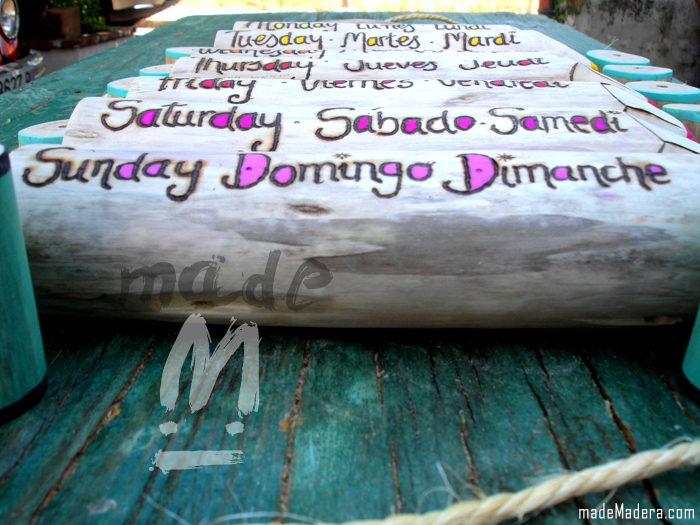 Monday Lunes Lundi
Tuesday · Martes · Mardi
Wednesday
Thursday Jueves Jeudi
Friday Viernes Vendredi
Saturday · Sábado · Samedi
Sunday Domingo Dimanche
made
M
madeMadera.com